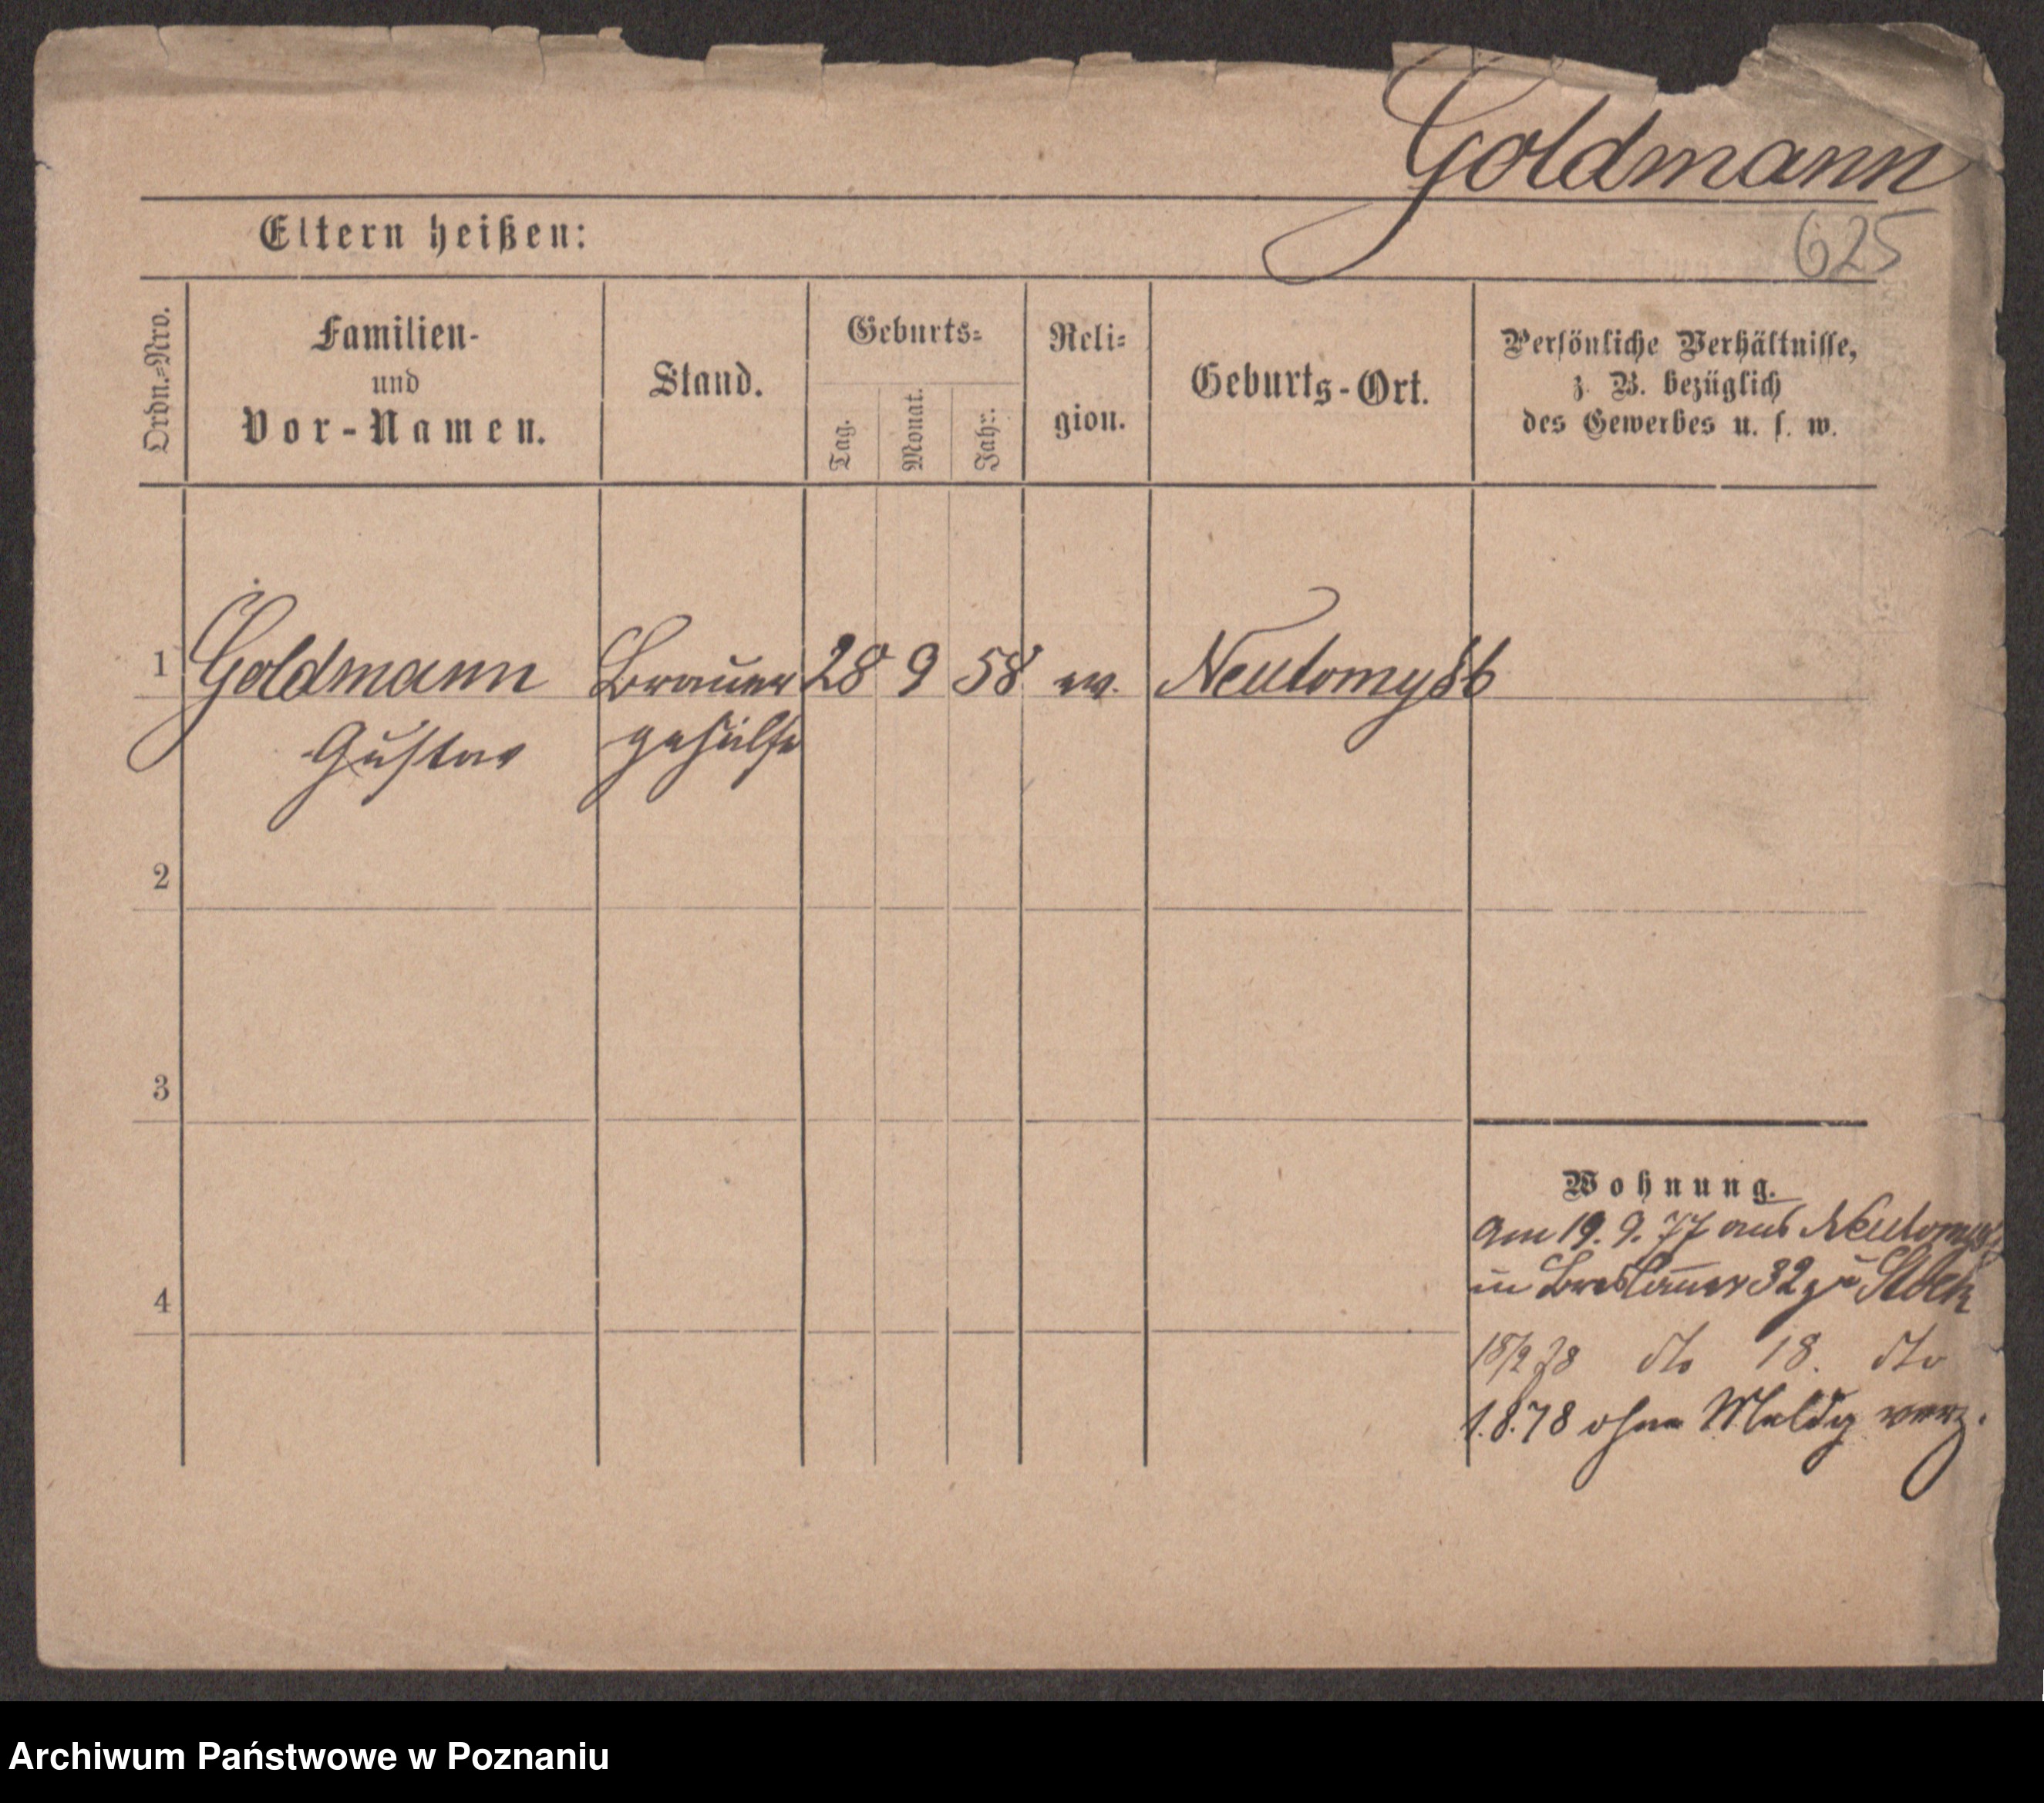 Goldmann
625
Eltern heißen:
Ordn.-Nro.
Familien-
und
Vor-Namen.
Stand.
Geburts-
Tag.
Monat.
Jahr.
Reli-
gion.
Geburts-Ort.
Persönliche Verhältnisse,
z. B. bezüglich
des Gewerbes u. s. w.
1 Goldmann Brauer 28 9 58 ev. Neutomysl
Gustav gehülfe
2
3
4
Wohnung.
Am 19. 9. 77 aus Neutomysl
in Breslauer 32 zu
18/2 78 dto 18. dto
1.8.78 ohne Meldg verz.
Archiwum Państwowe w Poznaniu